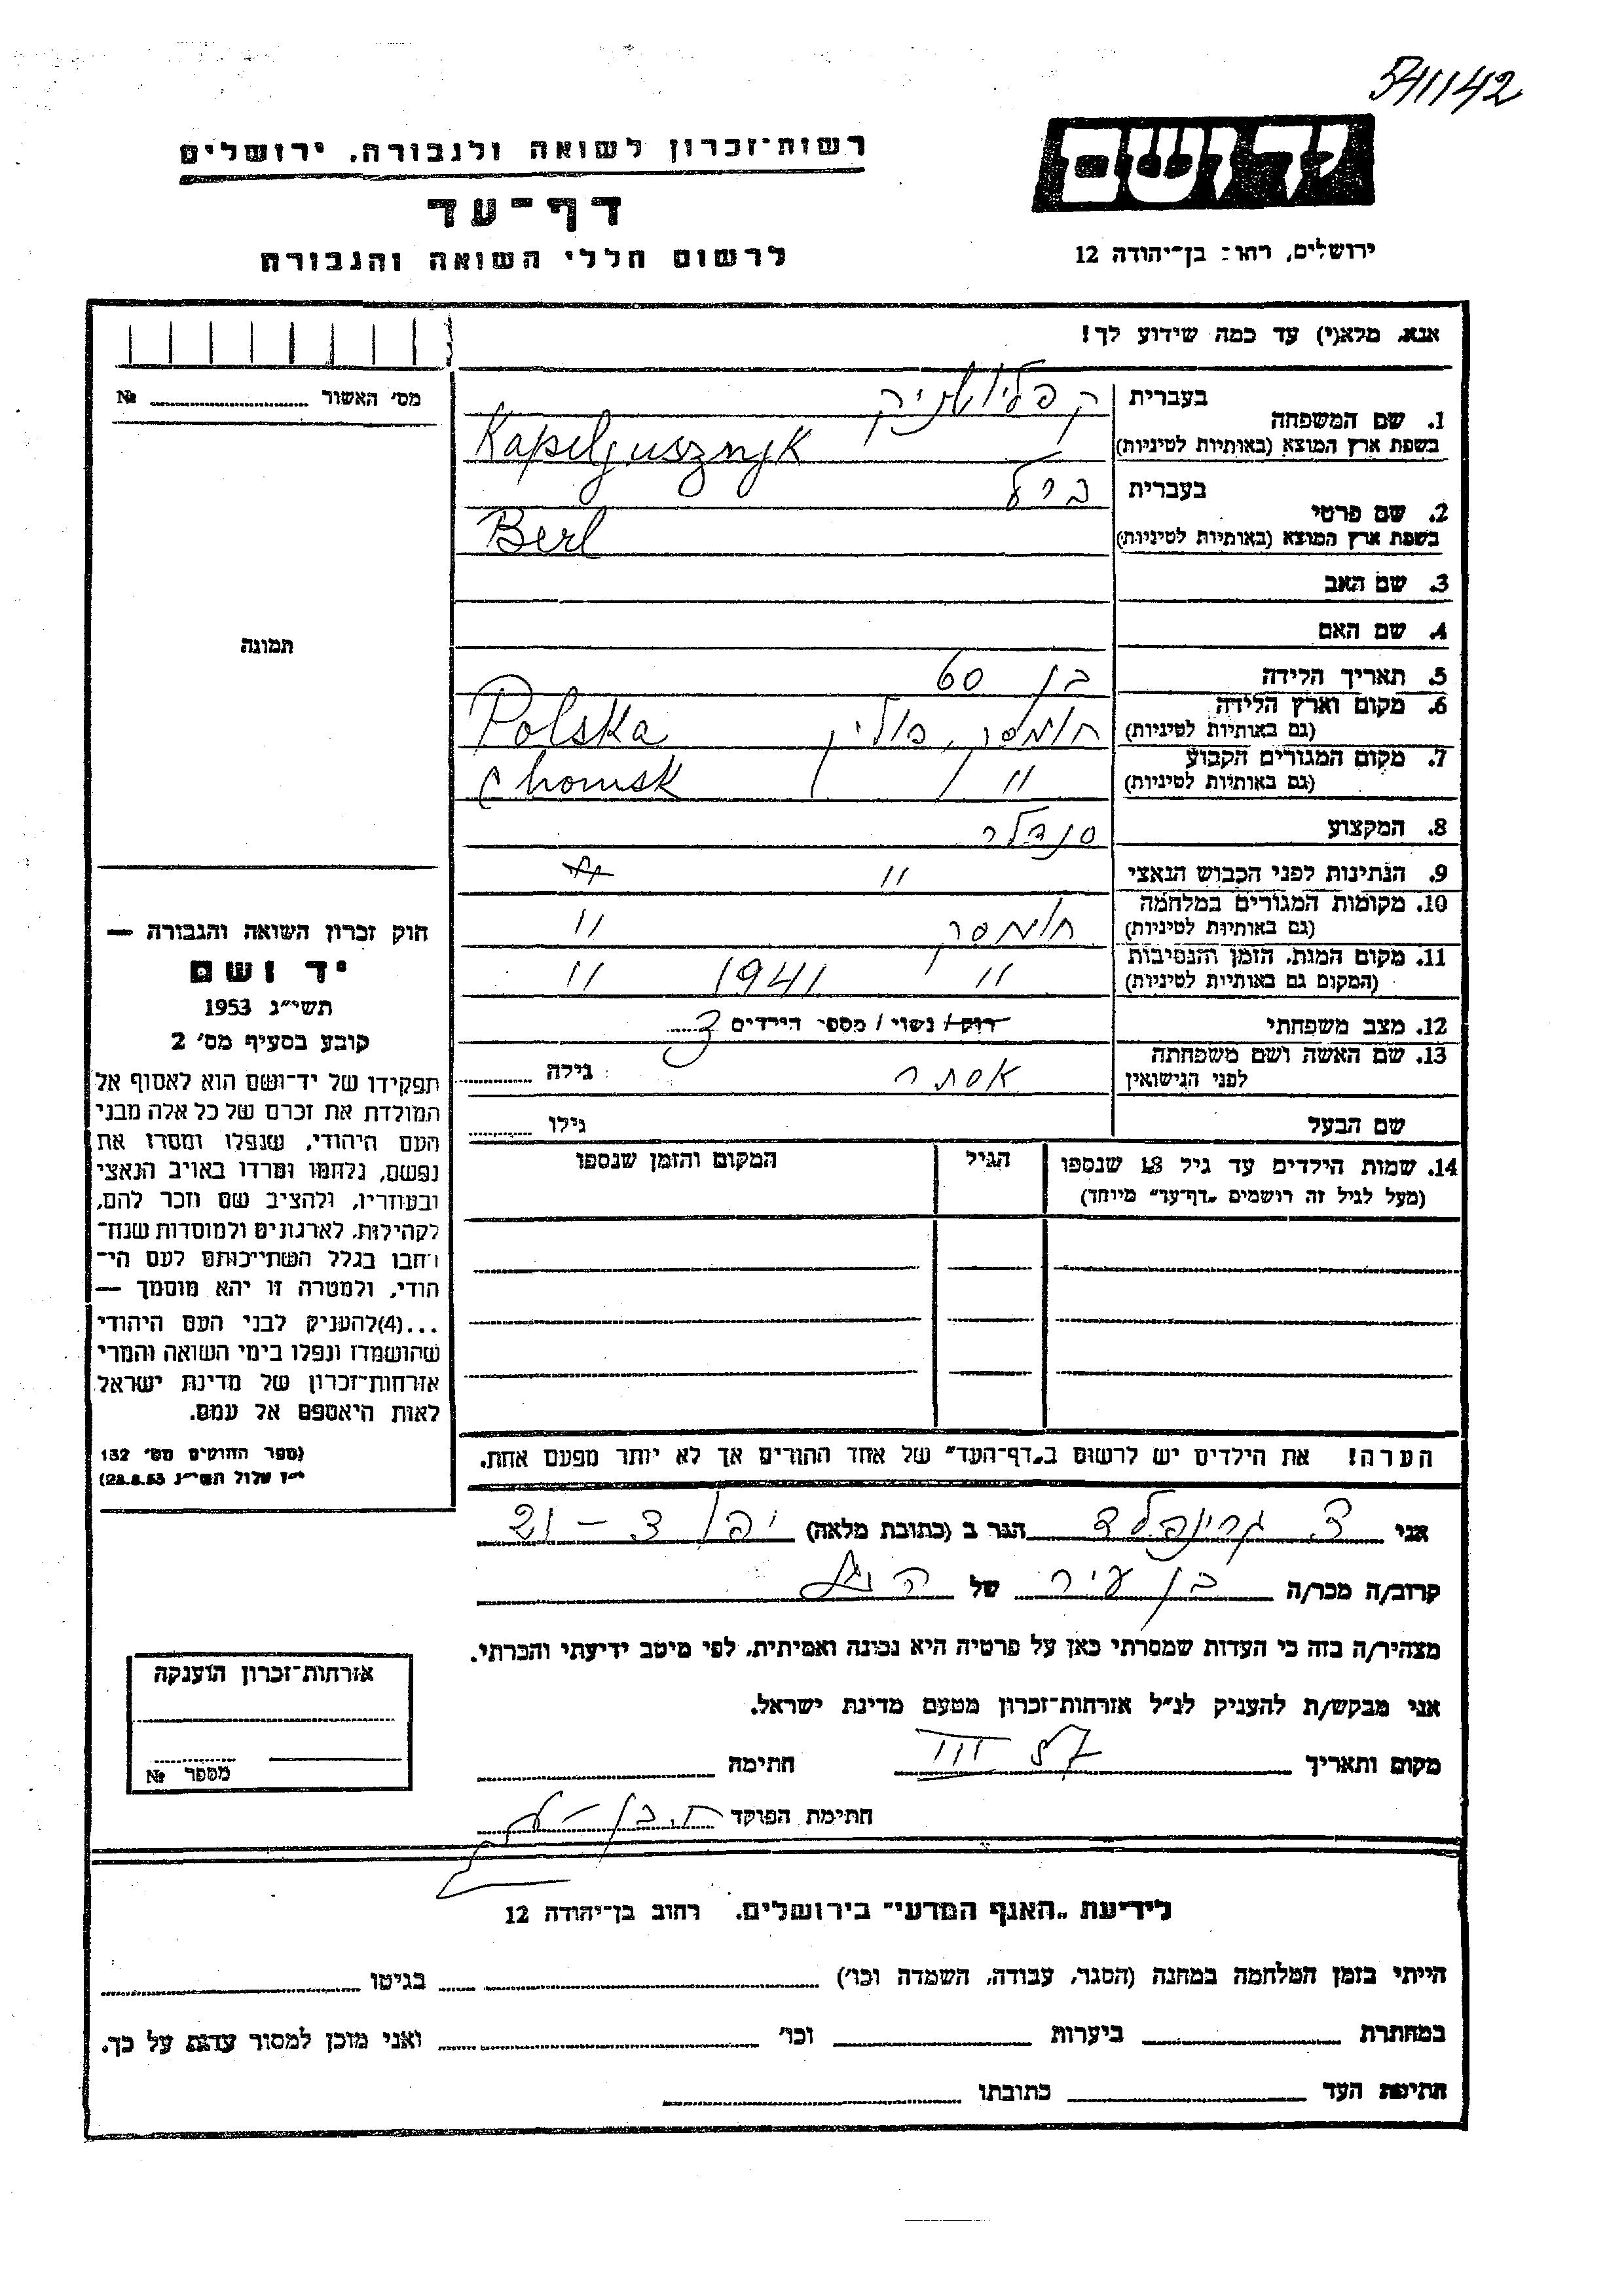 541142
יד ושם
רשות־זכרון לשואה ולגבורה, ירושלים
דף־עד
לרשום חללי השואה והגבורה
ירושלים, רחוב בן־יהודה 12
אנא, מלא(י) עד כמה שידוע לך!
מס׳ האשור №
1. שם המשפחה
בעברית
בשפת ארץ המוצא (באותיות לטיניות)
Kapeljusznyk
2. שם פרטי
בעברית ברל
בשפת ארץ המוצא (באותיות לטיניות)
Berl
3. שם האב
4. שם האם
תמונה
5. תאריך הלידה בן 60
6. מקום וארץ הלידה
(גם באותיות לטיניות)
חומסק, פולין Polska
7. מקום המגורים הקבוע
(גם באותיות לטיניות)
" / / Chomsk
8. המקצוע סנדלר
9. הנתינות לפני הכבוש הנאצי "
10. מקומות המגורים במלחמה
(גם באותיות לטיניות)
חומסק "
11. מקום המות, הזמן והנסיבות
(המקום גם באותיות לטיניות)
" 1941 "
12. מצב משפחתי רוק/ נשוי/ מספר הילדים 3
13. שם האשה ושם משפחתה
לפני הנישואין
אסתר גילה
שם הבעל גילו
14. שמות הילדים עד גיל 18 שנספו
(מעל לגיל זה רושמים „דף־עד״ מיוחד)
הגיל
המקום והזמן שנספו
הערה! את הילדים יש לרשום ב„דף־העד״ של אחד ההורים אך לא יותר מפעם אחת.
חוק זכרון השואה והגבורה —
יד ושם
תשי״ג 1953
קובע בסעיף מס׳ 2
תפקידו של יד־ושם הוא לאסוף אל
המולדת את זכרם של כל אלה מבני
העם היהודי, שנפלו ומסרו את
נפשם, נלחמו ומרדו באויב הנאצי
ובעוזריו, ולהציב שם וזכר להם,
לקהילות, לארגונים ולמוסדות שנח־
רבו בגלל השתייכותם לעם הי־
הודי, ולמטרה זו יהא מוסמך —
...(4)להעניק לבני העם היהודי
שהושמדו ונפלו בימי השואה והמרי
אזרחות־זכרון של מדינת ישראל
לאות היאספם אל עמם.
(ספר החוקים מס׳ 132
י״ז אלול תשי״ג 28.8.53)
אני גרינפלד הגר ב (כתובת מלאה) יפו 21 – 3
קרוב/ה מכר/ה בן עיר של
מצהיר/ה בזה כי העדות שמסרתי כאן על פרטיה היא נכונה ואמיתית, לפי מיטב ידיעתי והכרתי.
אני מבקש/ת להעניק לנ״ל אזרחות־זכרון מטעם מדינת ישראל.
מקום ותאריך III 57 חתימה
חתימת הפוקד
אזרחות־זכרון הוענקה
מספר №
לידיעת „האגף המדעי״ בירושלים, רחוב בן־יהודה 12
הייתי בזמן המלחמה במחנה (הסגר, עבודה, השמדה וכו׳) בגיטו
במחתרת ביערות וכו׳ ואני מוכן למסור עדות על כך.
חתימת העד כתובתו